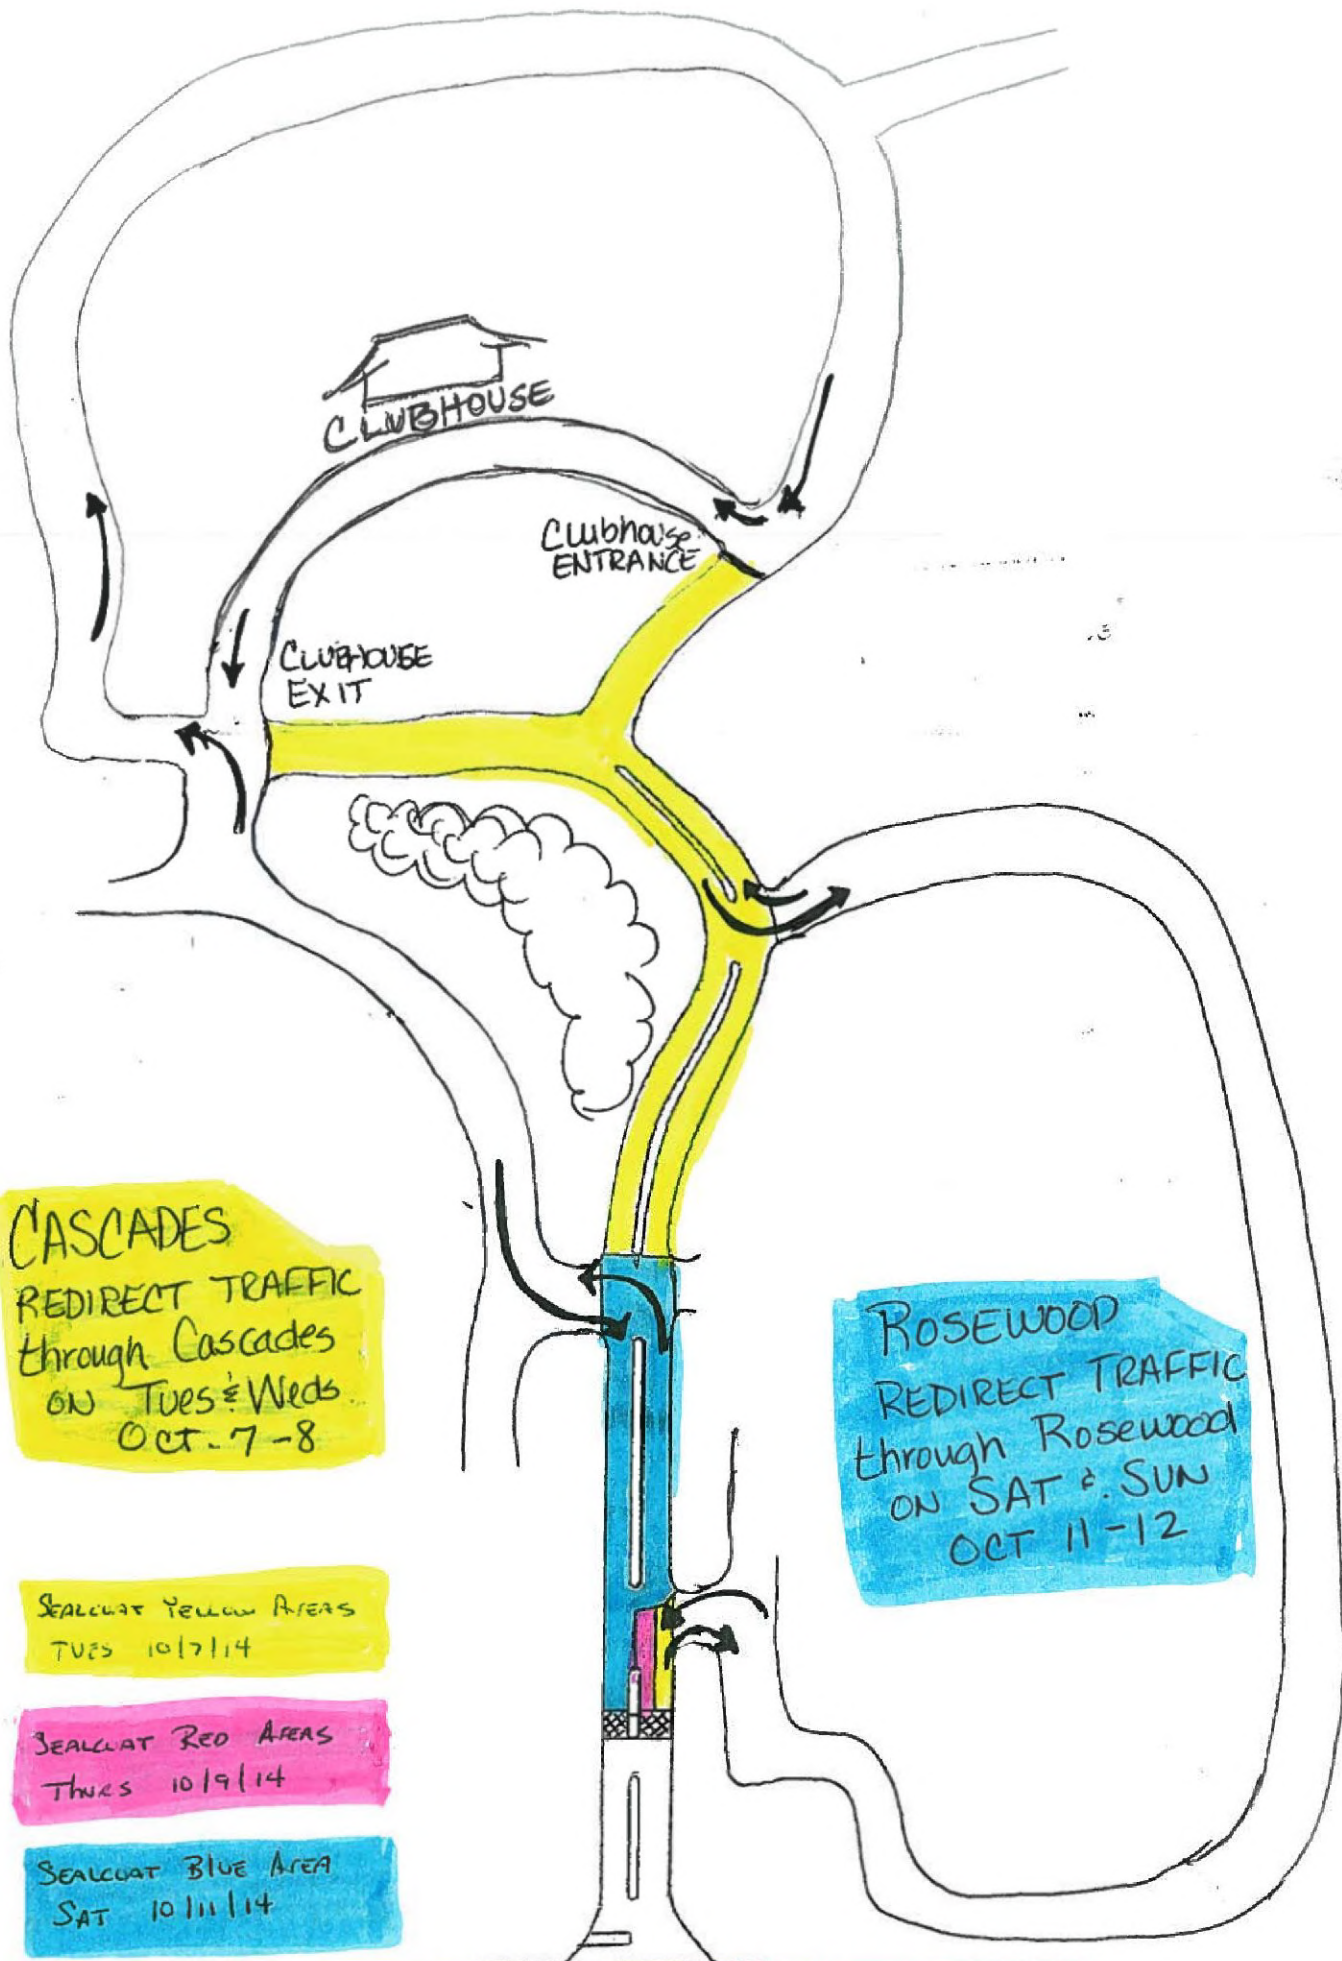 CLUBHOUSE
Clubhouse
ENTRANCE
CLUBHOUSE
EXIT
CASCADES
REDIRECT TRAFFIC
through Cascades
ON Tues & Weds
OCT. 7-8
ROSEWOOD
REDIRECT TRAFFIC
through Rosewood
ON SAT & SUN
OCT 11-12
SEALCOAT YELLOW AREAS
TUES 10/7/14
SEALCOAT RED AREAS
THURS 10/9/14
SEALCOAT BLUE AREA
SAT 10/11/14